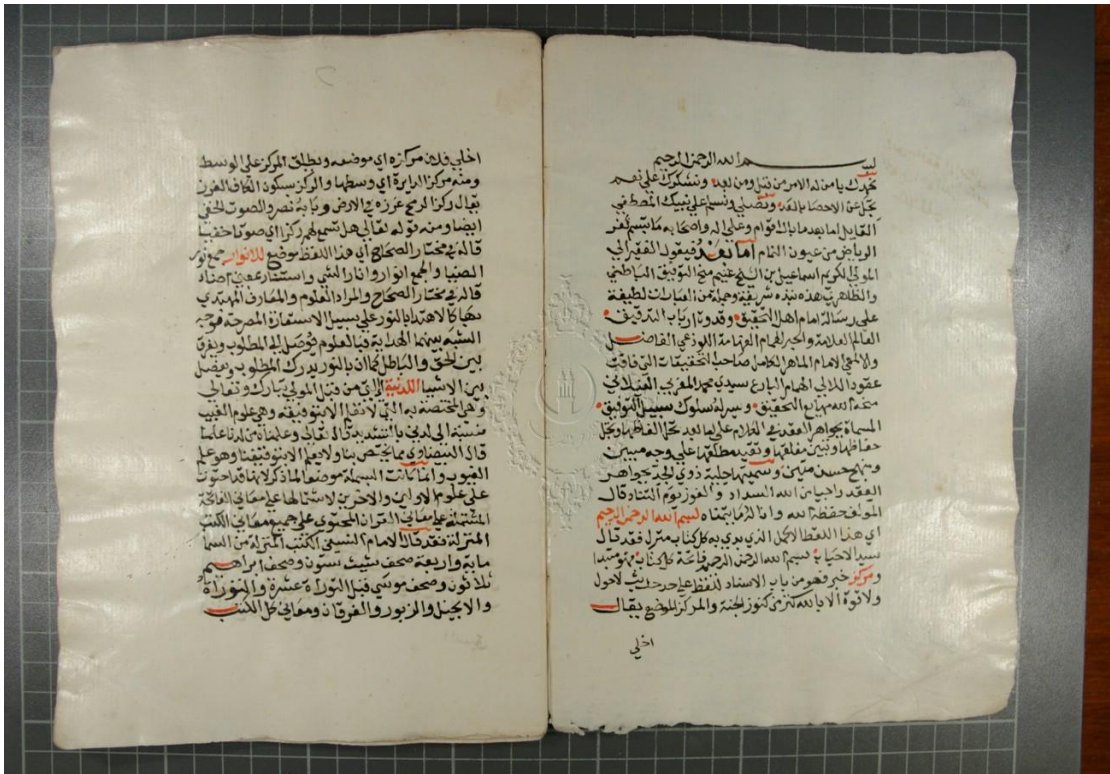 بسم الله الرحمن الرحيم
نحمدك يا من له الامر من قبل ومن بعد ونشكرك على نعم
تجل عن الاحصا بالعد ونصلي ونسلم على نبيك المصطفى
القايل اما بعد ما بال اقوام وعلى اله واصحابه ما تبسم ثغر
الرياض من عيون الغمام اما بعد فيقول الفقير الى
المولى الكريم اسماعيل بن الشيخ غنيم منح التوفيق الباطني
والظاهري هذه نبذه شريفة وجملة من العبارات لطيفة
على رسالة امام اهل التحقيق وقدوة ارباب التدقيق
العالم العلامة والحبر الهمام الفهامة اللوذعي الفاضل
والالمعي الامام الماهر الكامل صاحب التحقيقات التي فاقت
عقود اللالي الهمام البارع سيدي محمد المغربي
منحه الله مهايع التحقيق ويسر له سلوك سبيل التوفيق
المسماة بجواهر العقد في الكلام على اما بعد تحل الفاظها وتجل
حفاظها وتبين مغلقها وتقيد مطلقها على وجه مبين
ومنهج حسن متين وسميتها حلية ذوي المجد بجواهر
العقد راجيا من الله السداد والفوز يوم التناد قال
المولف حفظه الله واناله ما يتمناه بسم الله الرحمن الرحيم
اي هذا اللفظ الاكمل الذي بدي به كل كتاب منزل فقد قال
سيد الاحباب بسم الله الرحمن الرحيم فاتحة كل كتاب فهو مبتدا
ومركز خبر فهو من باب الاسناد للفظ على حد حديث لا حول
ولا قوة الا بالله كنز من كنوز الجنة والمركز الموضع يقال
اخلي
اخلي فلان مركزه اي موضعه ويطلق المركز على الوسط
ومنه مركز الدايرة اي وسطها والركز بسكون الكاف الغرز
يقال ركز الرمح غرزه في الارض وبابه نصر والصوت الخفي
ايضا ومنه قوله تعالى هل تسمع لهم ركزا اي صوتا خفيا
قاله في مختار الصحاح اي هذا اللفظ موضع للانوار جمع نور
الضيا والجمع انوار وانار الشي واستنار بمعنى اضاء
قاله في مختار الصحاح والمراد العلوم والمعارف المهتدي
بها كالاهتدا بالنور على سبيل الاستعارة المصرحة فوجه
الشبه بينهما الهداية فبالعلوم توصل الى المطلوب ويفرق
بين الحق والباطل كما ان بالنور يدرك المطلوب ويفصل
بين الاشيا اللدنية الاتي من قبل المولى تبارك وتعالى
وهي المختصة به التي لا تعلم الا بتوفيقه وهي علوم الغيب
منسبة الى لدني بالتشديد قال تعالى وعلمناه من لدنا علما
قال البيضاوي مما يختص بنا ولا يعلم الا بتوفيقنا وهو علم
الغيوب وانما كانت البسملة موضعا لما ذكر لانها قد احتوت
على علوم الاولين والاخرين لاشتمالها على معاني الفاتحة
المشتملة على معاني القران المحتوي على جميع معاني الكتب
المنزلة فقد قال الامام النسفي الكتب المنزلة من السما
ماية واربعة صحف شيث ستون وصحف ابراهيم
ثلاثون وصحف موسى قبل التوراة عشرة والتوراة
والانجيل والزبور والفرقان ومعاني كل الكتب